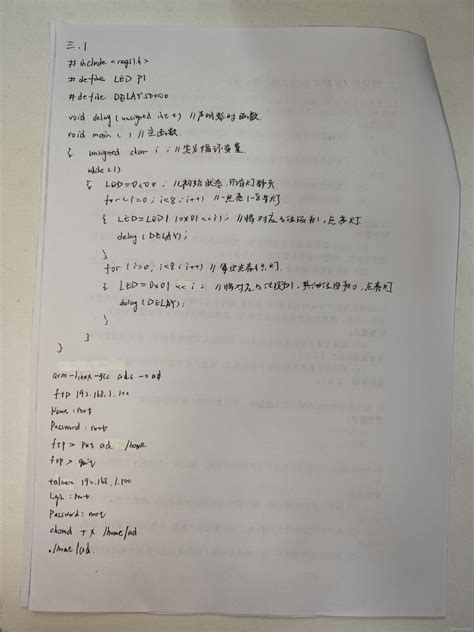 三.1
#include <reg51.h>
#define LED P1
#define DELAY 50000
void delay(unsigned int t) //声明延时函数
void main() //主函数
{ unsigned char i; //定义循环变量
while(1)
{ LED=0x00; //初始状态,所有灯熄灭
for(i=0; i<8; i++) //点亮1-8号灯
{ LED=LED|(0x01<<i); //将对应的位设为1,点亮灯
delay(DELAY);
}
for(i=0; i<8; i++) //每次点亮1个灯
{ LED=0x01<<i; //将对应的位设为1,其他位设为0,点亮灯
delay(DELAY);
}
}
}
arm-linux-gcc ad.c -o ad
ftp 192.168.1.100
Name: root
Password: root
ftp> put ad /home
ftp> quit
telnet 192.168.1.100
login: root
Password: root
chmod +x /home/ad
./home/ad